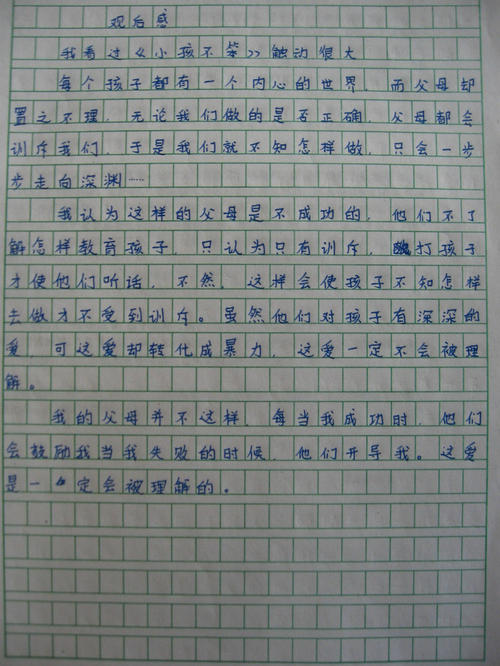 观后感
我看过《小孩不笨》触动很大
每个孩子都有一个内心的世界，而父母却
置之不理，无论我们做的是否正确，父母都会
训斥我们，于是我们就不知怎样做，只会一步
步走向深渊……
我认为这样的父母是不成功的，他们不了
解怎样教育孩子，只认为只有训斥，打孩子
才使他们听话，不然，这样会使孩子不知怎样
去做才不受到训斥。虽然他们对孩子有深深的
爱，可这爱却转化成暴力，这爱一定不会被理
解。
我的父母并不这样，每当我成功时，他们
会鼓励我当我失败的时候，他们开导我。这爱
是一定会被理解的。